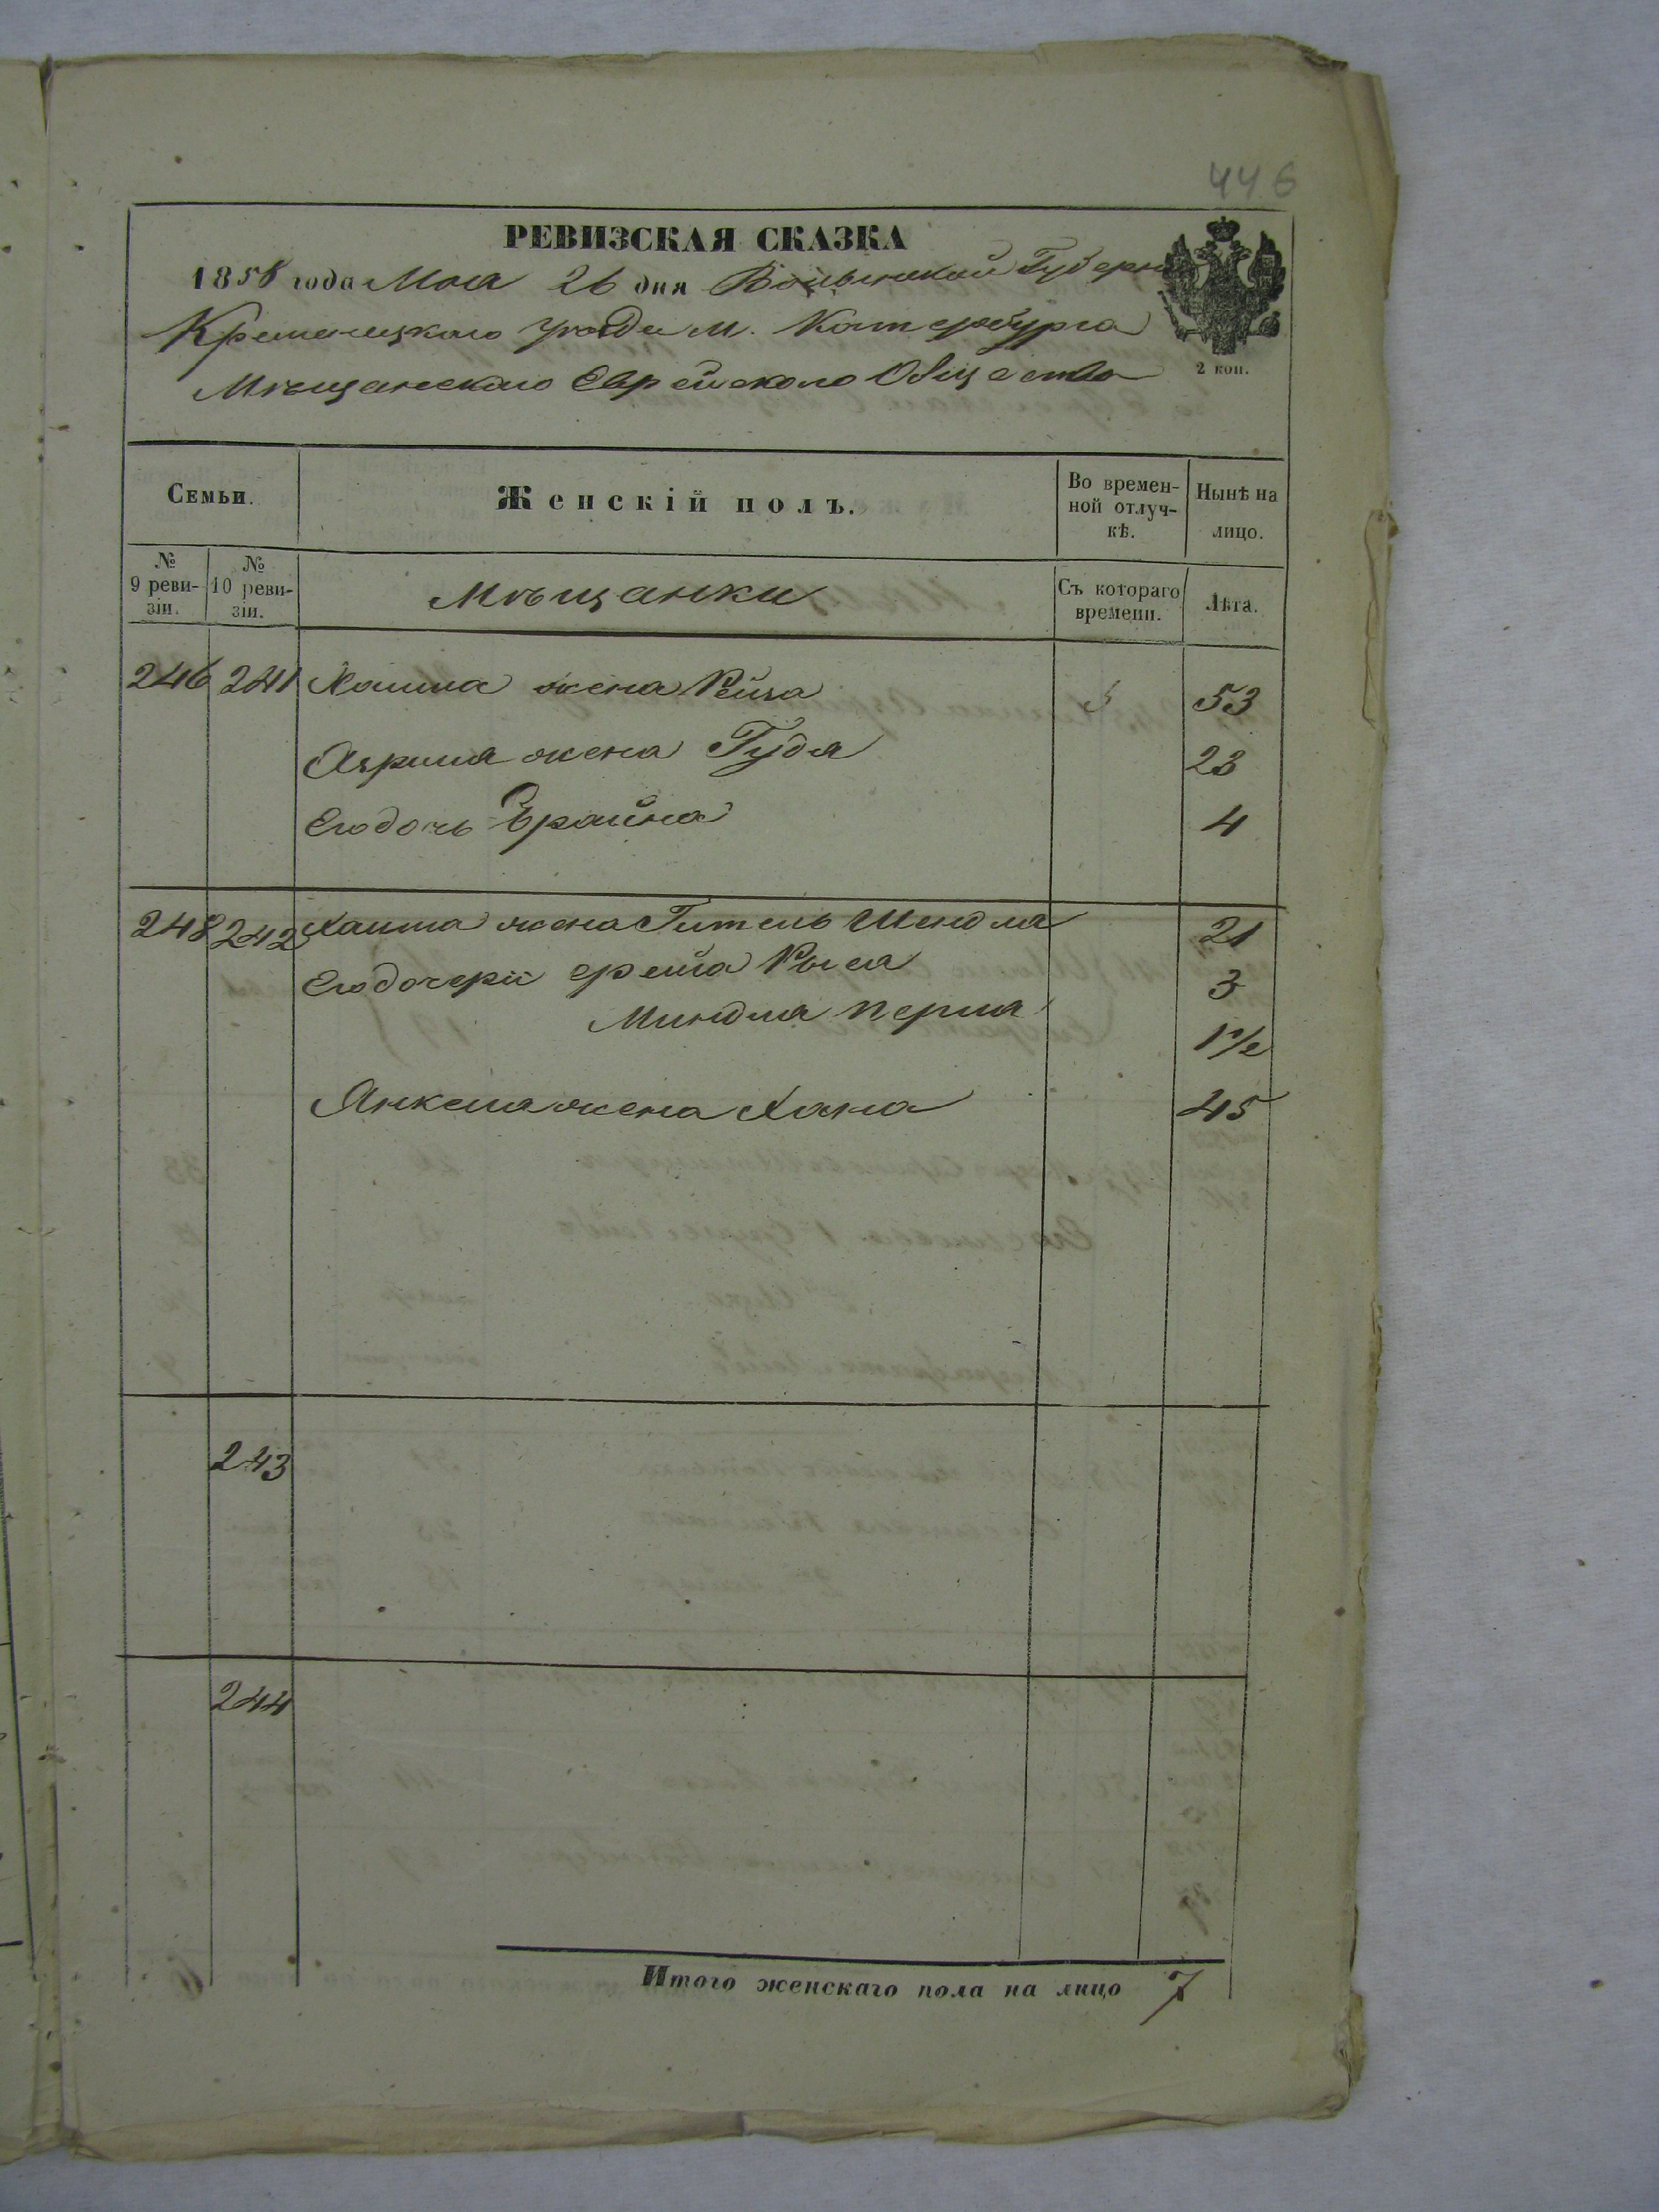 446
РЕВИЗСКАЯ СКАЗКА
1858 года Мая 26 дня Волынской Губерн
Кременецкаго уезда м. Катербурга
Мѣщанскаго Еврейскаго Общества
2 коп.
Семьи. Женскій полъ. Во времен-ной отлуч-кѣ. Нынѣ на лицо.
№ 9 реви-зіи. № 10 реви-зіи. Мѣщанки Съ котораго времени. Лѣта.
246 241 Хаима жена Рейза 53
Азриля жена Гудя 23
Его дочь Брайна 4
248 242 Хаима жена Гитель Шендля 21
Его дочери Фрейга Рыся 3
Миндля Перля 1 1/2
Янкеля жена Хана 45
243
244
Итого женскаго пола на лицо 7